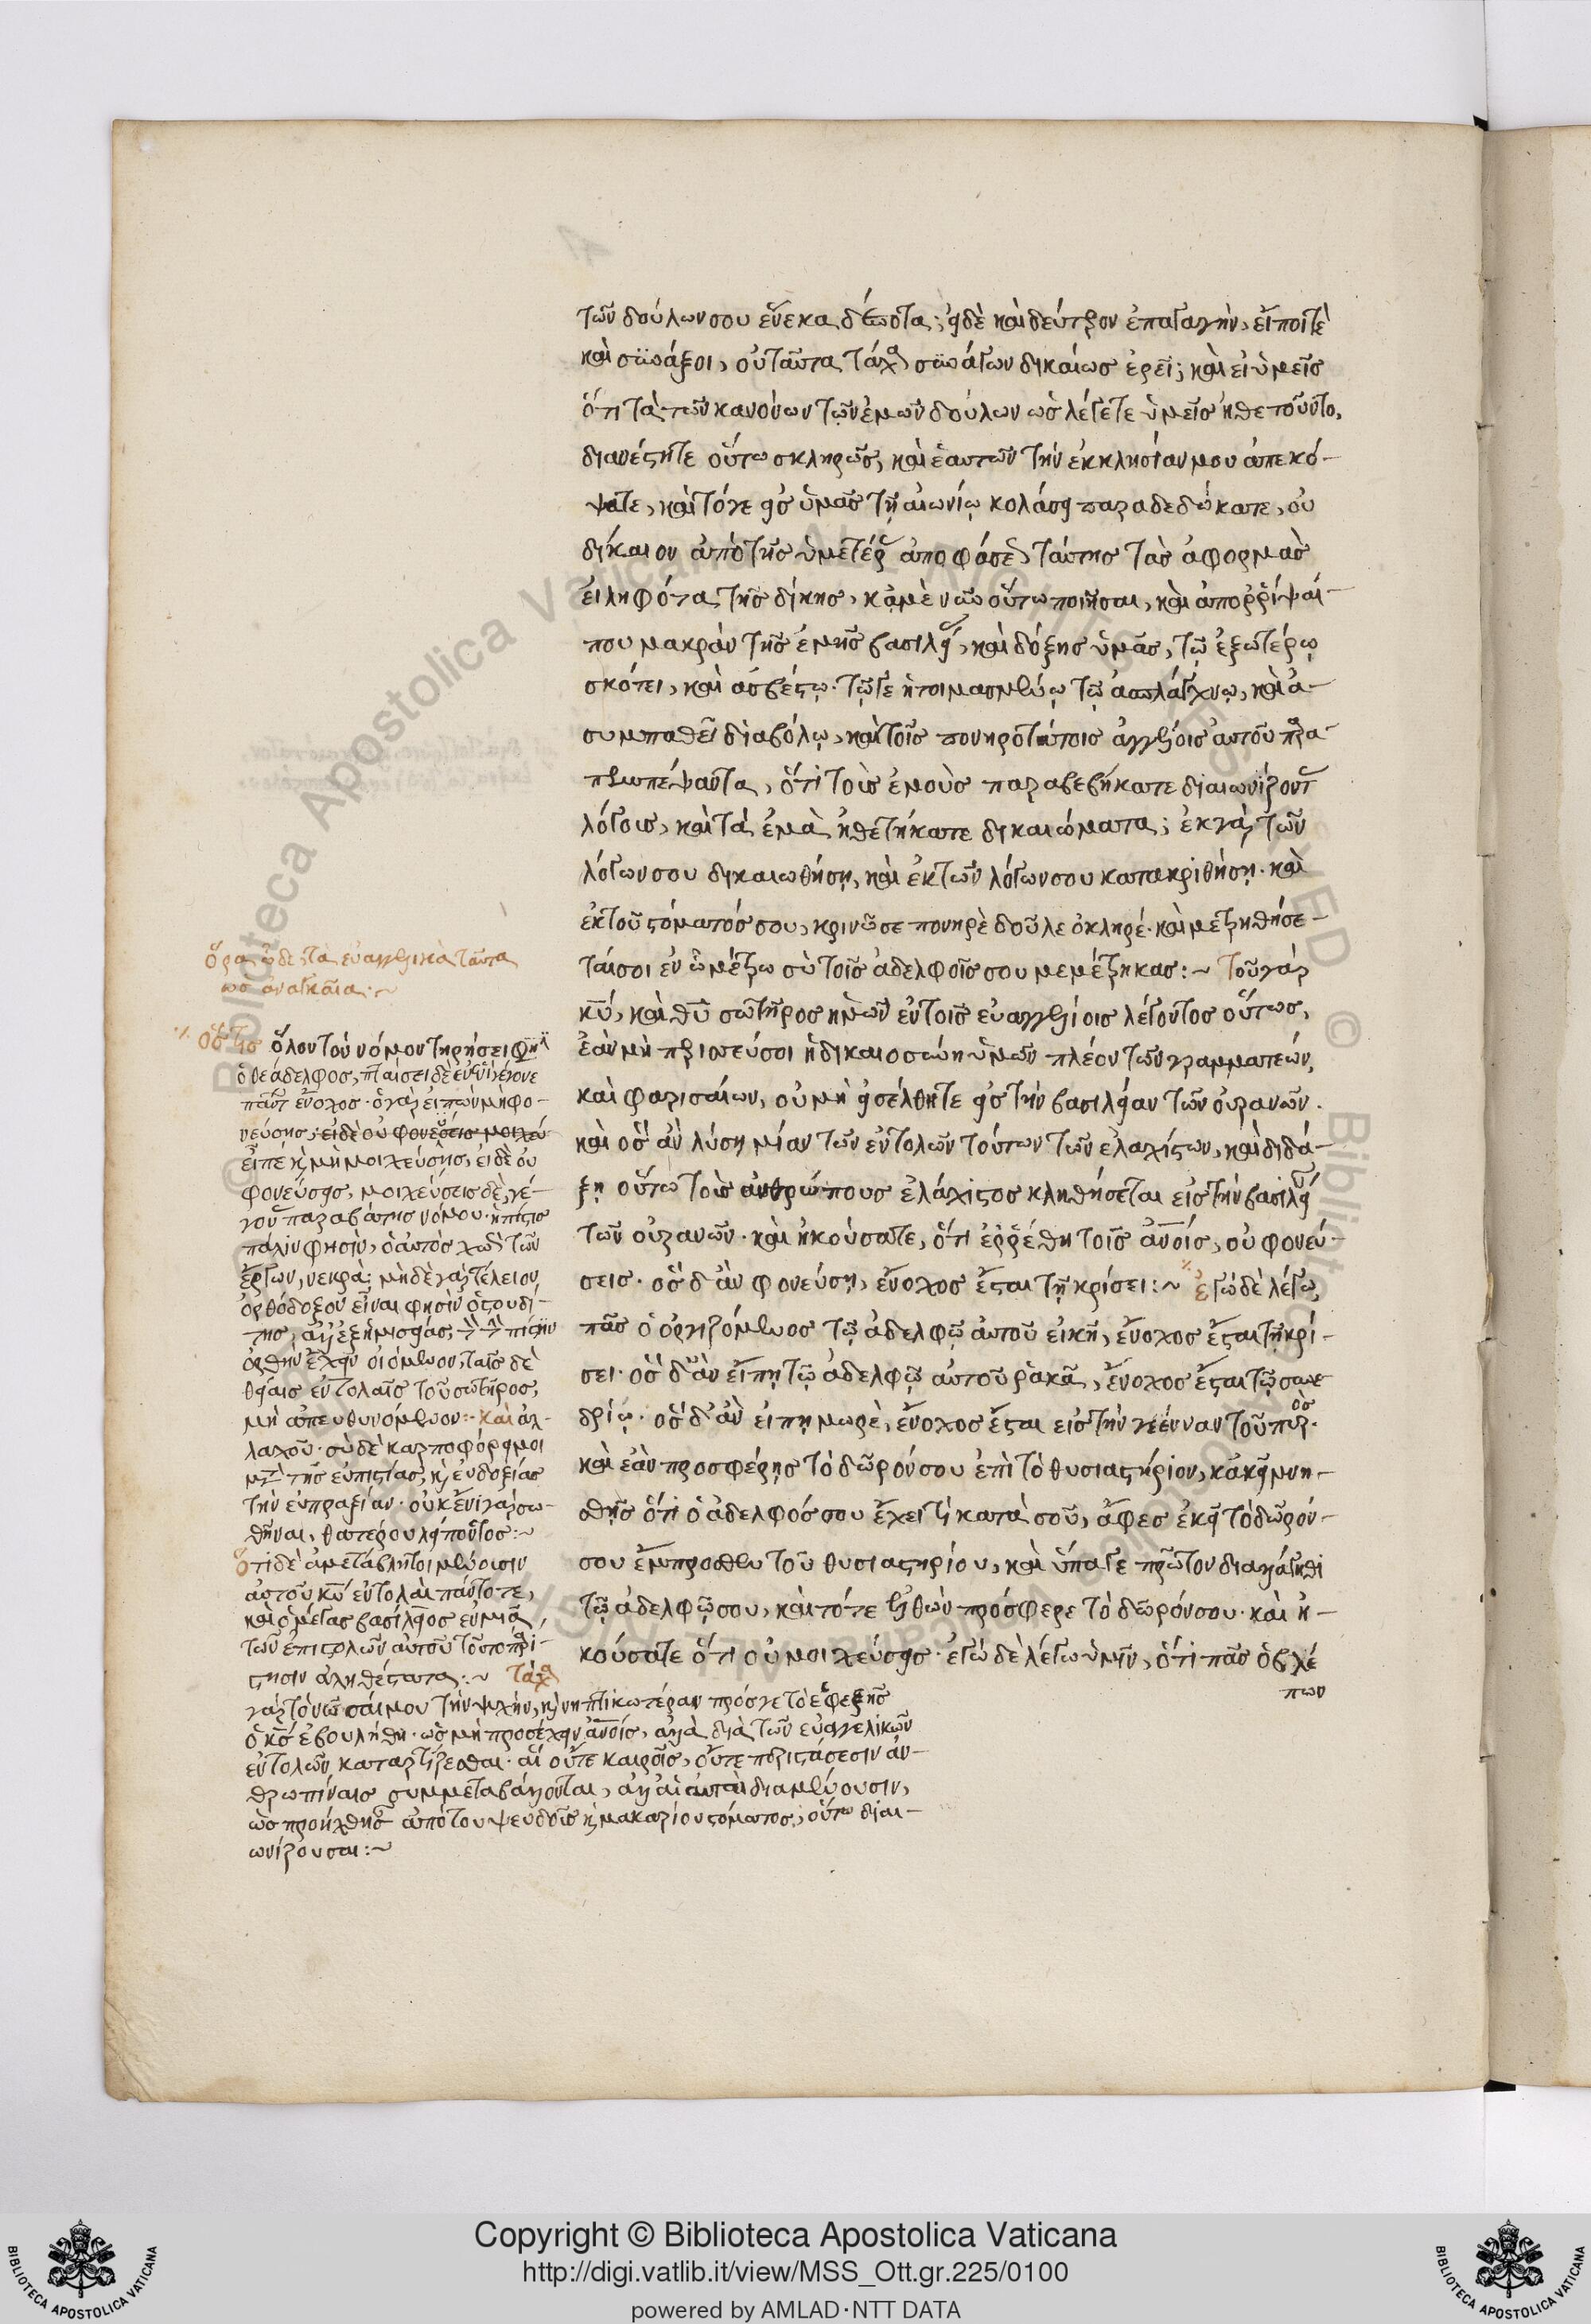 τῶν δούλων σου ἕνεκα δέσποτα; εἰ δὲ καὶ δεύτερον ἐπαγαγὴν, εἴποι τὲ
καὶ συνάξοι, οὐ ταῦτα τάχα συνάγων δικαίως ἐρεῖ; καὶ εἰ ὑμεῖς
ὅτι τὰ τῶν κανόνων τῶν ἐμῶν δούλων ὡς λέγετε ὑμεῖς ἠθετοῦντο,
διανέστητε οὕτω σκληρῶς, καὶ ἑαυτῶν τὴν ἐκκλησίαν μου ἀπεκό-
ψατε, καὶ τόγε εἰς ὑμᾶς τῇ αἰωνίῳ κολάσει παραδεδώκατε, οὐ
δίκαιον ἀπὸ τῆς ὑμετέρας ἀποφάσεως ταύτης τὰς ἀφορμὰς
εἰληφότα τῆς δίκης, κἀμὲ νῦν οὕτω ποιῆσαι, καὶ ἀπορρίψαί
που μακρὰν τῆς ἐμῆς βασιλείας, καὶ δόξης ὑμᾶς, τῷ ἐξωτέρῳ
σκότει, καὶ ἀσβέστῳ. τῷ γε ἡτοιμασμένῳ τῷ ἀσπλάγχνῳ, καὶ ἀ-
συμπαθεῖ διαβόλῳ, καὶ τοῖς πονηροτάτοις ἀγγέλοις αὐτοῦ παρα-
πεμπέψαντα, ὅτι τοὺς ἐμοὺς παραβεβήκατε διαιωνίζοντας
λόγους, καὶ τὰ ἐμὰ ἠθετήκατε δικαιώματα; ἐκ γὰρ τῶν
λόγων σου δικαιωθήσῃ, καὶ ἐκ τῶν λόγων σου κατακριθήσῃ. καὶ
ἐκ τοῦ στόματός σου, κρινῶ σε πονηρὲ δοῦλε ὀκληρέ. καὶ μετρηθήσε-
ταί σοι ἐν ᾧ μέτρω σὺ τοῖς ἀδελφοῖς σου μεμέτρηκας:~ Τοῦ γὰρ
κυ, καὶ θυ σωτῆρος ἡμῶν ἐν τοῖς εὐαγγελίοις λέγοντος οὕτως,
ἐὰν μὴ περισσεύσοι ἡ δικαιοσύνη ὑμῶν πλέον τῶν γραμματεών,
καὶ φαρισαίων, οὐ μὴ εἰσέλθητε εἰς τὴν βασιλείαν τῶν οὐρανῶν.
καὶ ὃς ἂν λύση μίαν τῶν ἐντολῶν τούτων τῶν ἐλαχίστων, καὶ διδά-
ξῃ οὕτω τοὺς ἀνθρώπους ἐλάχιστος κληθήσεται εἰς τὴν βασιλείαν
τῶν οὐρανῶν. καὶ ἠκούσατε, ὅτι ἐρρέθη τοῖς ανοις, οὐ φονεύ-
σεις. ὃς δ' ἂν φονεύσῃ, ἔνοχος ἔσται τῇ κρίσει:~ ἐγὼ δὲ λέγω,
πᾶς ὁ ὀργιζόμενος τῷ ἀδελφῷ αὐτοῦ εἰκῆ, ἔνοχος ἔσται τῇ κρί-
σει. ὃς δ' ἂν εἴπῃ τῷ ἀδελφῷ αὐτοῦ ῥακᾶ, ἔνοχος ἔσται τῷ συνε
δρίῳ. ὃς δ' ἂν εἴπῃ μωρὲ, ἔνοχος ἔσται εἰς τὴν γέενναν τοῦ πυρός.
καὶ ἐὰν προσφέρῃς τὸ δῶρόν σου ἐπὶ τὸ θυσιαστήριον, κἀκεῖ μνη-
σθῇς ὅτι ὁ ἀδελφός σου ἔχει τὶ κατὰ σοῦ, ἄφες ἐκεῖ τὸ δῶρόν-
σου ἔμπροσθεν τοῦ θυσιαστηρίου, καὶ ὕπαγε πρῶτον διαλλάγηθι
τῷ ἀδελφῷ σου, καὶ τότε ἐλθὼν πρόσφερε τὸ δῶρόν σου. καὶ ἠ-
κούσατε ὅτι οὐ μοιχεύσεις. ἐγὼ δὲ λέγω ὑμῖν, ὅτι πᾶς ὁ βλέ
πων
ὅρα ὧδε τὰ εὐαγγελικὰ ταῦτα
ὡς ἀναγκαῖα:~
ὅστις ὅλον τὸν νόμον τηρήσει φησὶν
ὁ θεάδελφος, πταίσει δὲ ἐν ἑνὶ, γέγονε
πάντων ἔνοχος. ὁ γὰρ εἰπὼν μὴ φο-
νεύσῃς, εἰ δὲ οὐ φονεύσεις μοιχεύ
εἶπε καὶ μὴ μοιχεύσης, εἰ δὲ οὐ
φονεύσεις, μοιχεύσεις δὲ, γέ-
γονας παραβάτης νόμου. ἡ πίστις
πάλιν φησὶν, ὁ αὐτὸς χωρὶς τῶν
ἔργων, νεκρά; μὴ δὲ γὰρ τέλειον,
ὀρθόδοξον εἶναι φησὶν
ὀρθὴν ἔχειν οἰόμενον, ταῖς δὲ
θείαις ἐντολαῖς τοῦ σωτῆρος,
μὴ ἀπευθυνόμενον:- καὶ ἀλ-
λαχοῦ. σὺ δὲ καρποφόρει μοι
μετὰ τῆς εὐπιστίας, καὶ ἐνδοξίας
τὴν εὐπραξίαν. οὐκ ἔνι γὰρ σω-
θῆναι, θατέρου λείποντος:~
ὅτι δὲ ἀμετάβλητοι μένουσιν
αἱ τοῦ κυ ἐντολαὶ πάντοτε,
καὶ ὁ μέγας βασίλειος ἐν μιᾷ
τῶν ἐπιστολῶν αὐτοῦ τοῦτο παρί-
στησιν ἀληθέστατα:~ τάχα
γὰρ τὸ νῦν σαί μου τὴν ψυχὴν, καὶ νηπτικωτέραν πρός γε τὸ ἐφεξῆς
ὁ κς ἐβουλήθη. ὡς μὴ προσέχειν ανοις, ἀλλὰ διὰ τῶν εὐαγγελικῶν
ἐντολῶν καταρτίζεσθαι. αἳ οὔτε καιροῖς, οὔτε περιστάσεσιν ἀν-
θρωπίναις συμμεταβάλλονται, ἀλλ' αἱ αὐταὶ διαμένουσιν,
ὡς προήχθησαν ἀπὸ τοῦ ἀψευδοῦς καὶ μακαρίου στόματος, οὕτω διαι-
ωνίζουσαι:~
Copyright © Biblioteca Apostolica Vaticana
http://digi.vatlib.it/view/MSS_Ott.gr.225/0100
powered by AMLAD·NTT DATA